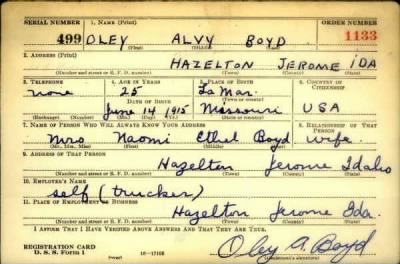 SERIAL NUMBER 1. NAME (Print) ORDER NUMBER
499 OLEY ALVY BOYD 1133
(First) (Middle) (Last)
2. ADDRESS (Print)
HAZELTON JEROME IDA
(Number and street or R. F. D. number) (Town) (County) (State)
3. TELEPHONE 4. AGE IN YEARS 5. PLACE OF BIRTH 6. COUNTRY OF CITIZENSHIP
none 25 La Mar
DATE OF BIRTH (Town or county)
June 14 1915 Missouri USA
(Exchange) (Number) (Mo.) (Day) (Yr.) (State or country)
7. NAME OF PERSON WHO WILL ALWAYS KNOW YOUR ADDRESS 8. RELATIONSHIP OF THAT PERSON
Mrs Naomi Ethel Boyd wife
(Mr., Mrs., Miss) (First) (Middle) (Last)
9. ADDRESS OF THAT PERSON
Hazelton Jerome Idaho
(Number and street or R. F. D. number) (Town) (County) (State)
10. EMPLOYER'S NAME
self (trucker)
11. PLACE OF EMPLOYMENT OR BUSINESS
Hazelton Jerome Ida.
(Number and street or R. F. D. number) (Town) (County) (State)
I AFFIRM THAT I HAVE VERIFIED ABOVE ANSWERS AND THAT THEY ARE TRUE.
REGISTRATION CARD
D. S. S. Form 1 16-17105 Oley A. Boyd
(Registrant's signature)